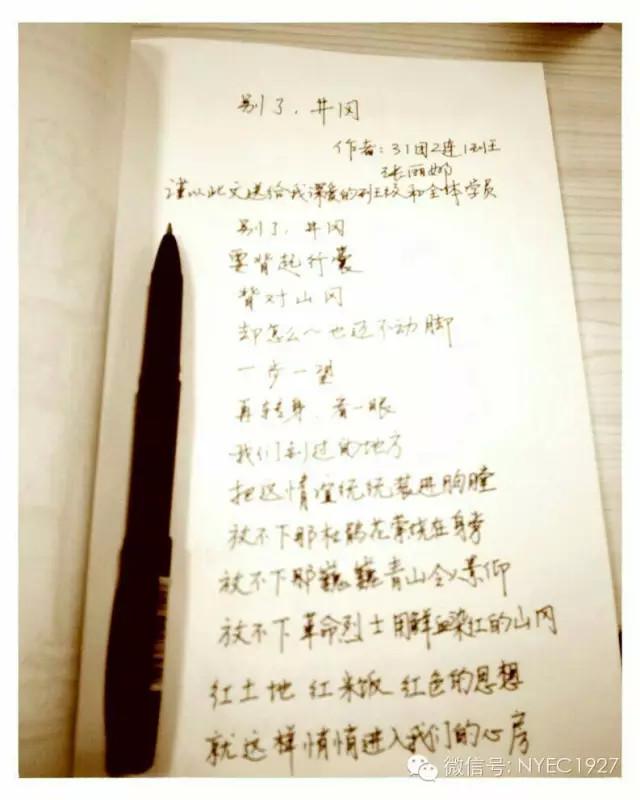 别了，井冈
作者：31团2连1班
张丽娜
谨以此文送给我深爱的班校和全体学员
别了，井冈
要背起行囊
背对山冈
却怎么～也迈不动脚
一步一望
再转身，看一眼
我们到过的地方
把这情谊统统装进胸膛
放不下那杜鹃花萦绕在身旁
放不下那巍巍青山令人景仰
放不下革命烈士用鲜血染红的山冈
红土地 红米饭 红色的思想
就这样悄悄进入我们的心房
微信号: NYEC1927